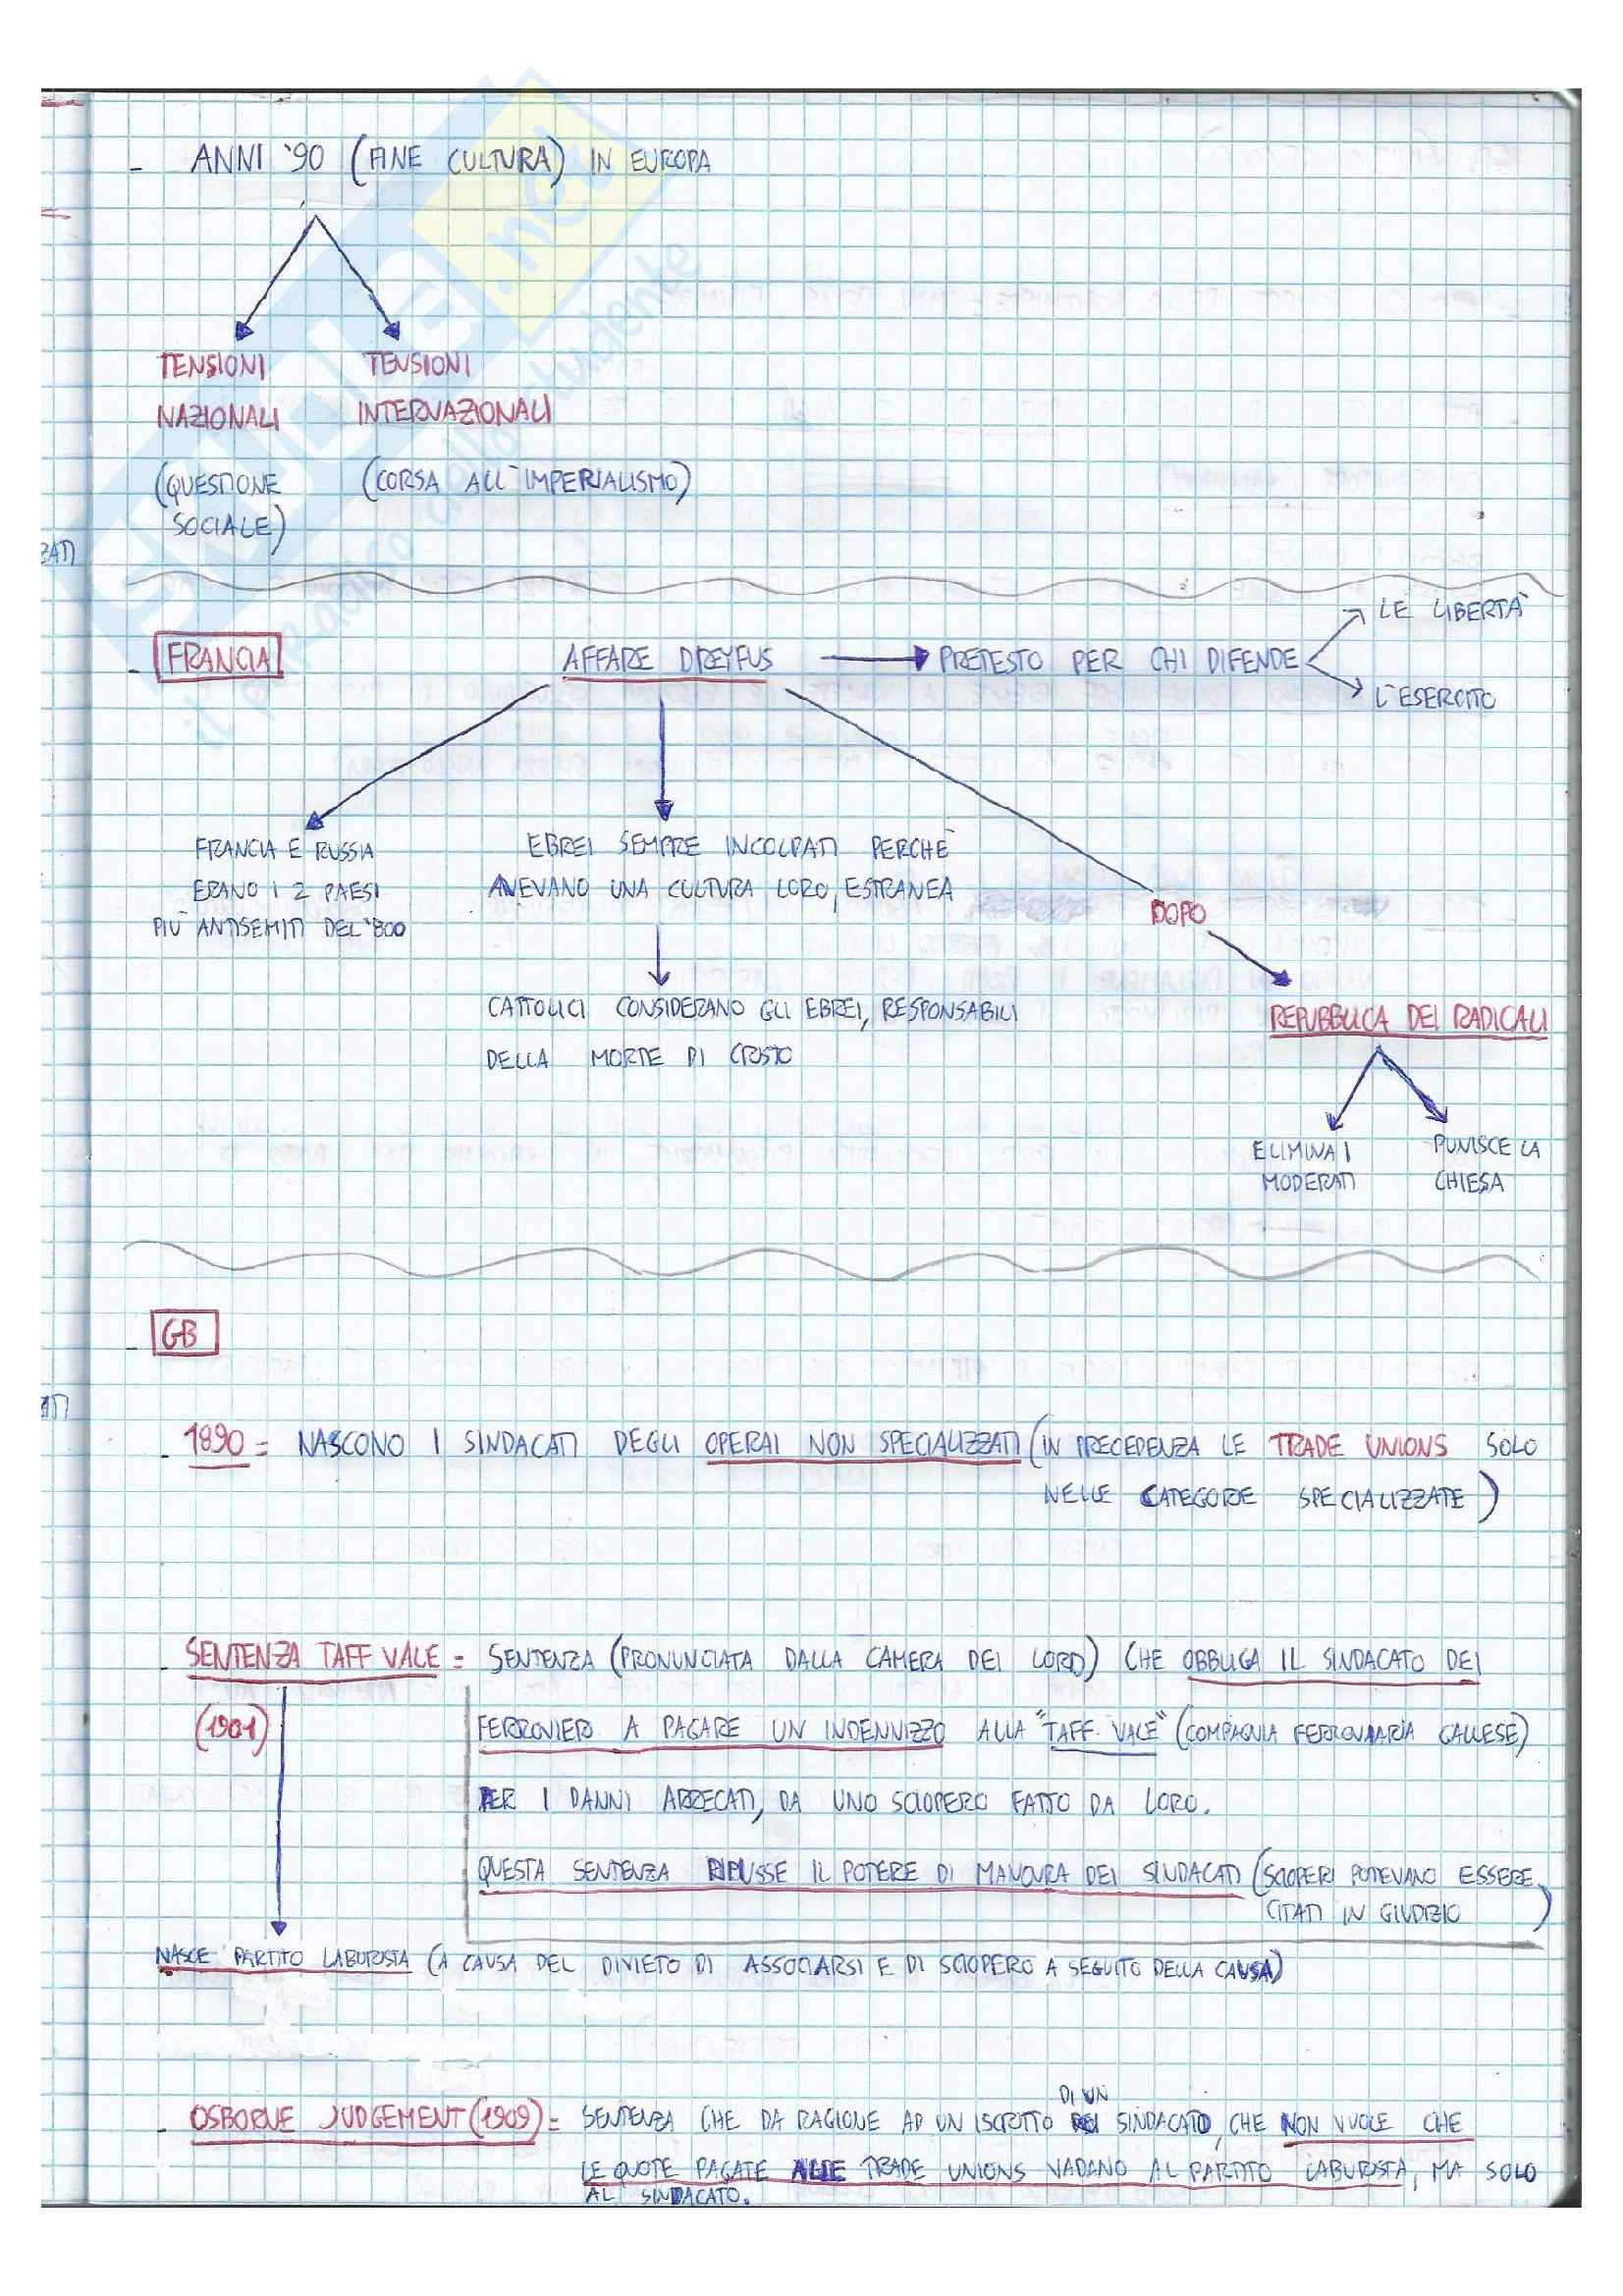 - ANNI '90 (FINE CULTURA) IN EUROPA
TENSIONI TENSIONI
NAZIONALI INTERNAZIONALI
(QUESTIONE (CORSA ALL'IMPERIALISMO)
SOCIALE)
LE LIBERTÀ
- FRANCIA AFFARE DREYFUS PRETESTO PER CHI DIFENDE
L'ESERCITO
FRANCIA E RUSSIA
ERANO I 2 PAESI
PIÙ ANTISEMITI DEL '800
EBREI SEMPRE INCOLPATI PERCHÈ
AVEVANO UNA CULTURA LORO, ESTRANEA
DOPO
CATTOLICI CONSIDERANO GLI EBREI, RESPONSABILI
DELLA MORTE DI CRISTO
REPUBBLICA DEI RADICALI
ELIMINA I
MODERATI
PUNISCE LA
CHIESA
- GB
- 1890 = NASCONO I SINDACATI DEGLI OPERAI NON SPECIALIZZATI (IN PRECEDENZA LE TRADE UNIONS SOLO
NELLE CATEGORIE SPECIALIZZATE)
- SENTENZA TAFF VALE = SENTENZA (PRONUNCIATA DALLA CAMERA DEI LORD) CHE OBBLIGA IL SINDACATO DEI
(1901) FERROVIERI A PAGARE UN INDENNIZZO ALLA "TAFF VALE" (COMPAGNIA FERROVIARIA GALLESE)
PER I DANNI ARRECATI, DA UNO SCIOPERO FATTO DA LORO.
QUESTA SENTENZA RIDUSSE IL POTERE DI MANOVRA DEI SINDACATI (SCIOPERI POTEVANO ESSERE
CITATI IN GIUDIZIO)
NASCE PARTITO LABURISTA (A CAUSA DEL DIVIETO DI ASSOCIARSI E DI SCIOPERO A SEGUITO DELLA CAUSA)
- OSBORNE JUDGEMENT (1909) = SENTENZA CHE DA RAGIONE AD UN ISCRITTO DI UN SINDACATO, CHE NON VUOLE CHE
LE QUOTE PAGATE ALLE TRADE UNIONS VADANO AL PARTITO LABURISTA, MA SOLO
AL SINDACATO.
Skuola.net
il paradiso dello studente